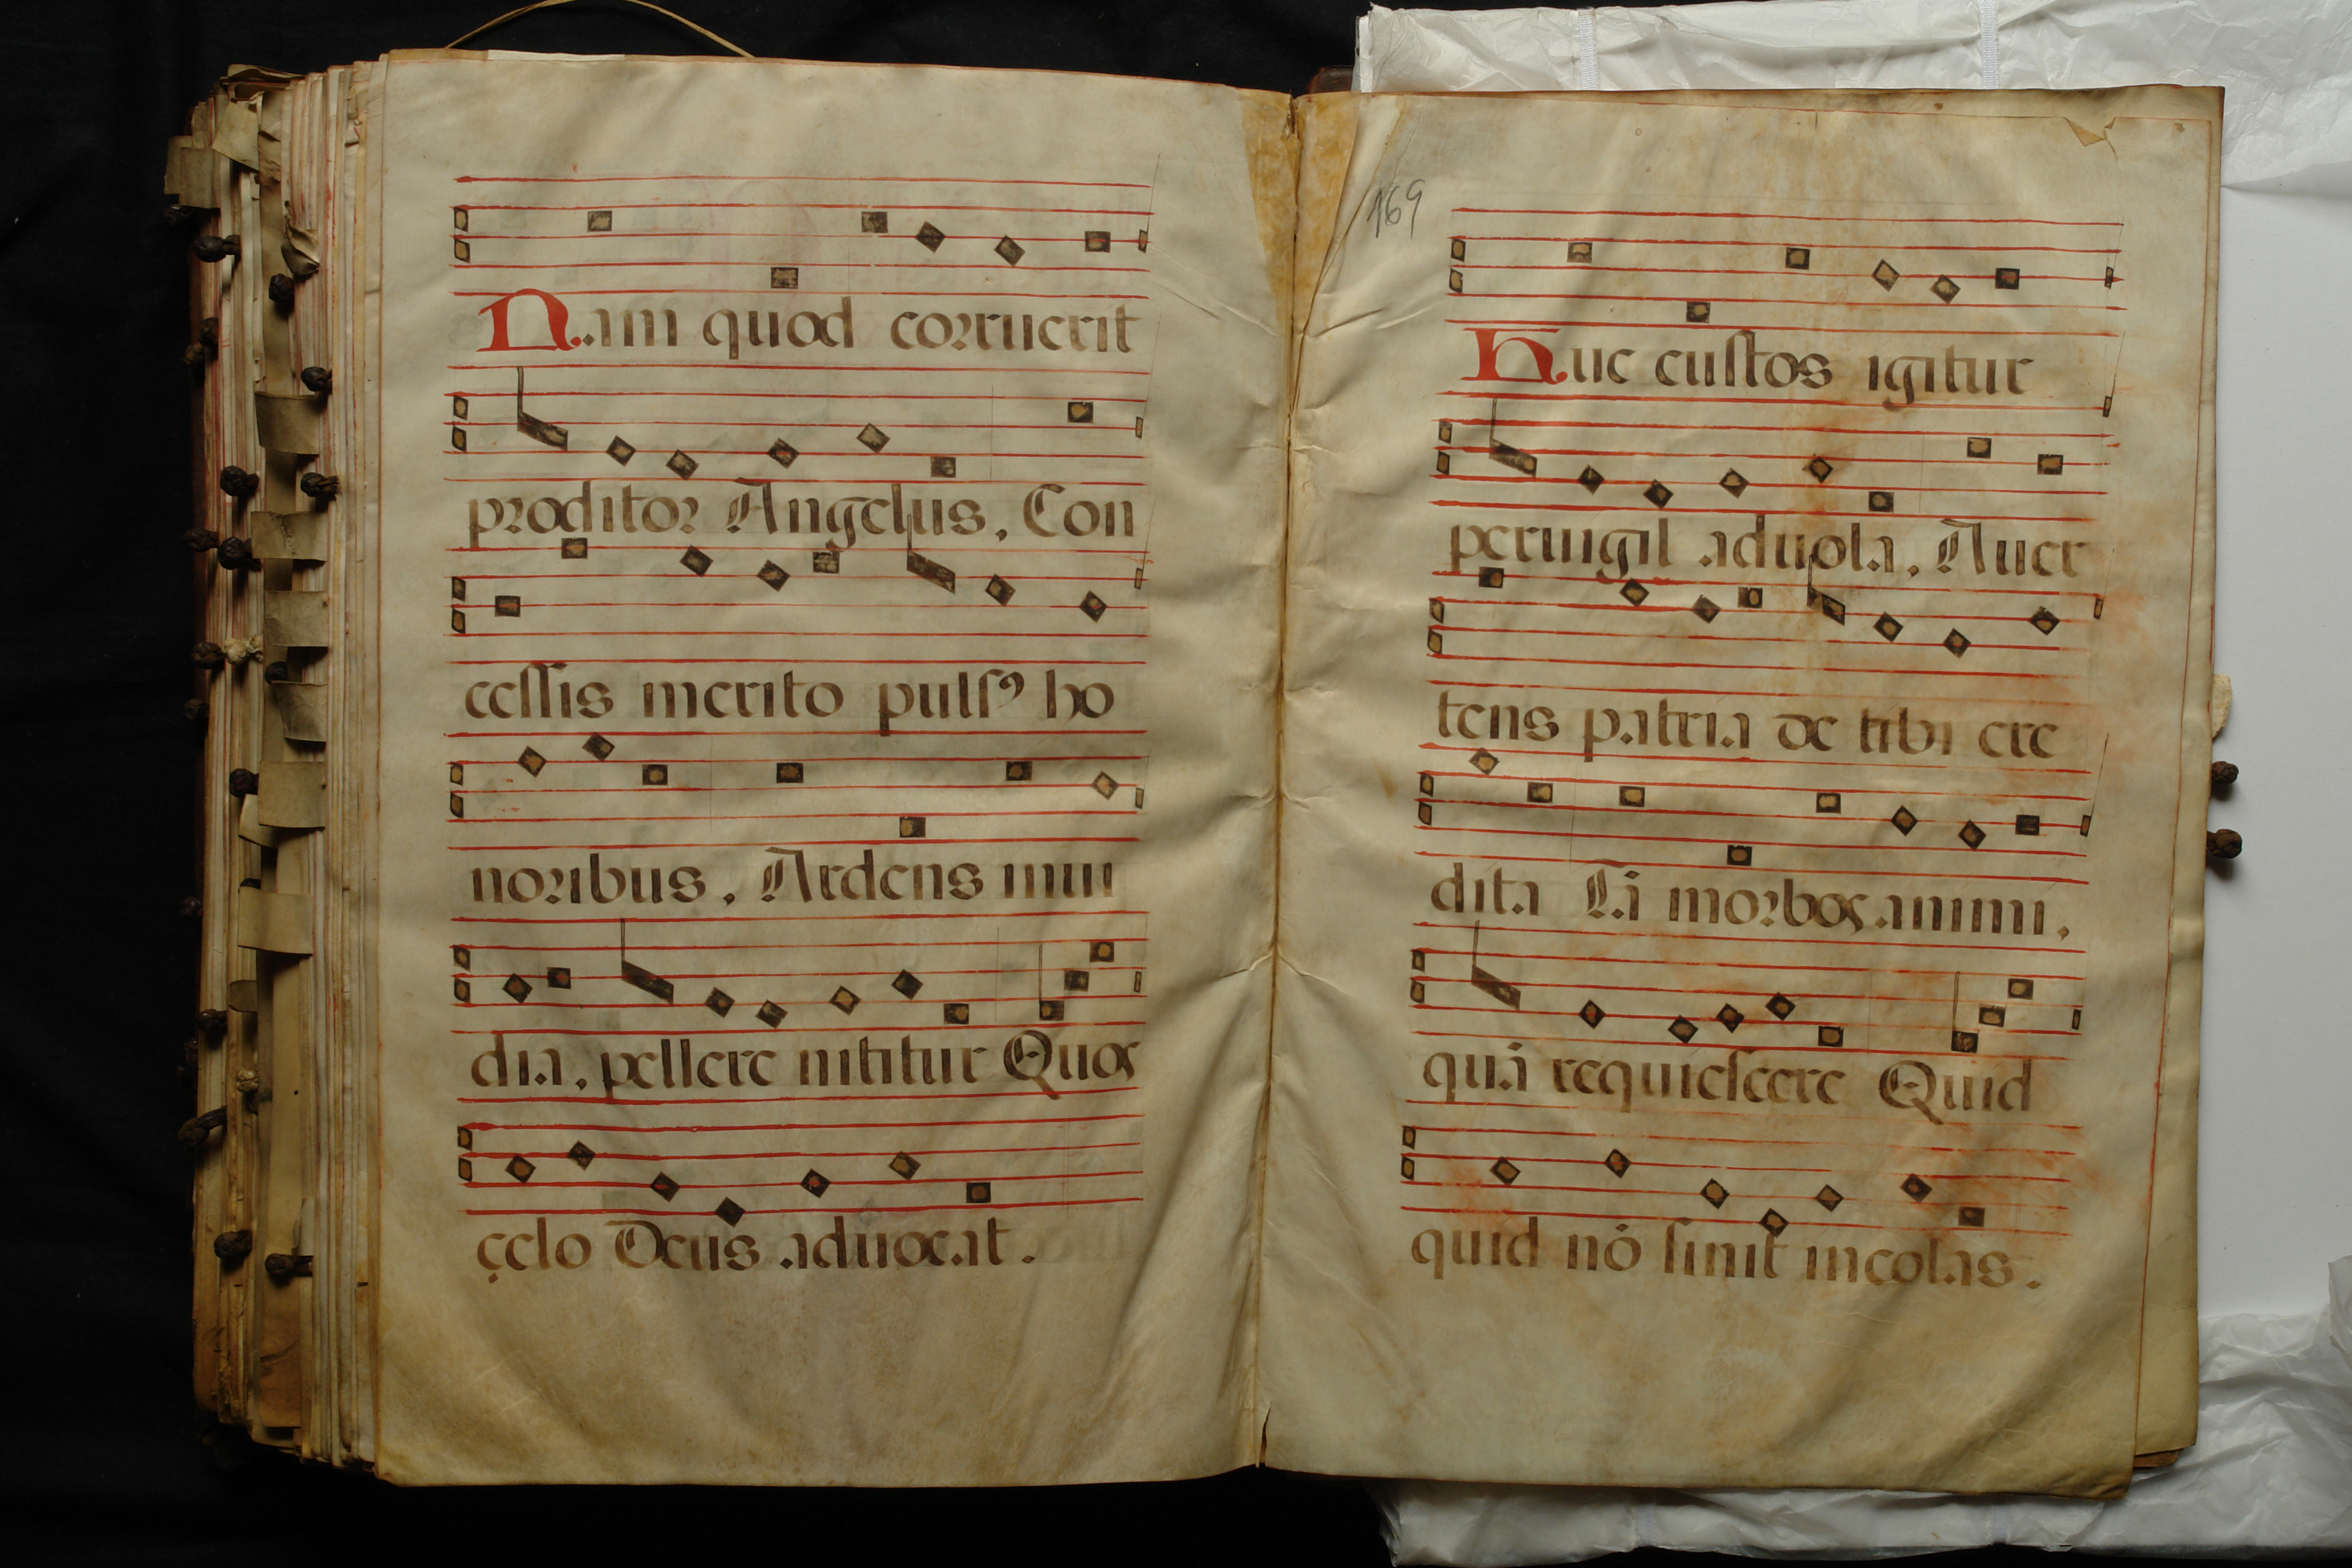 Nam quod corruerit
proditor Angelus, Con
cessis merito pulsꝰ ho
noribus, Ardens inui
dia, pellere nititur Quos
cęlo Deus aduocat.
169
Huc custos igitur
peruigil aduola, Auer
tens patria de tibi cre
dita Tā morbos animi,
quā requiescere Quid
quid nō sinit incolas.